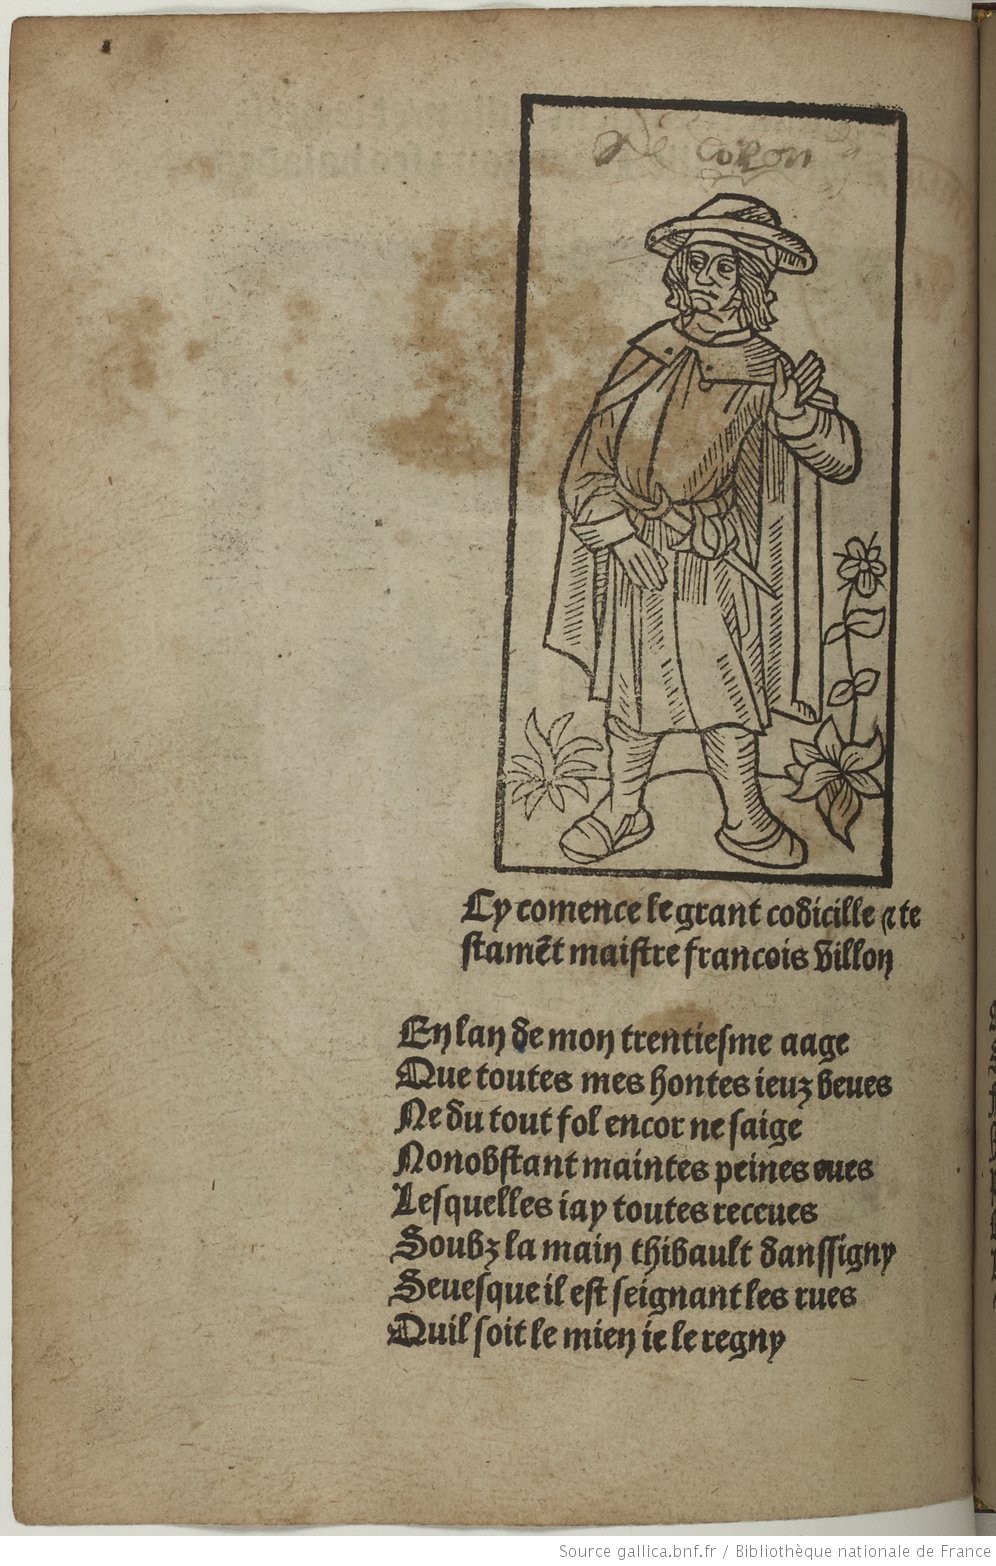 Cy comence le grant codicille ⁊ te
stamēt maistre francois Villon
En lan de mon trentiesme aage
Que toutes mes hontes ieuz beues
Ne du tout fol encor ne saige
Nonobstant maintes peines eues
Lesquelles iay toutes receues
Soubz la main thibault danssigny
Seuesque il est seignant les rues
Quil soit le mien ie le regny
Source gallica.bnf.fr / Bibliothèque nationale de France